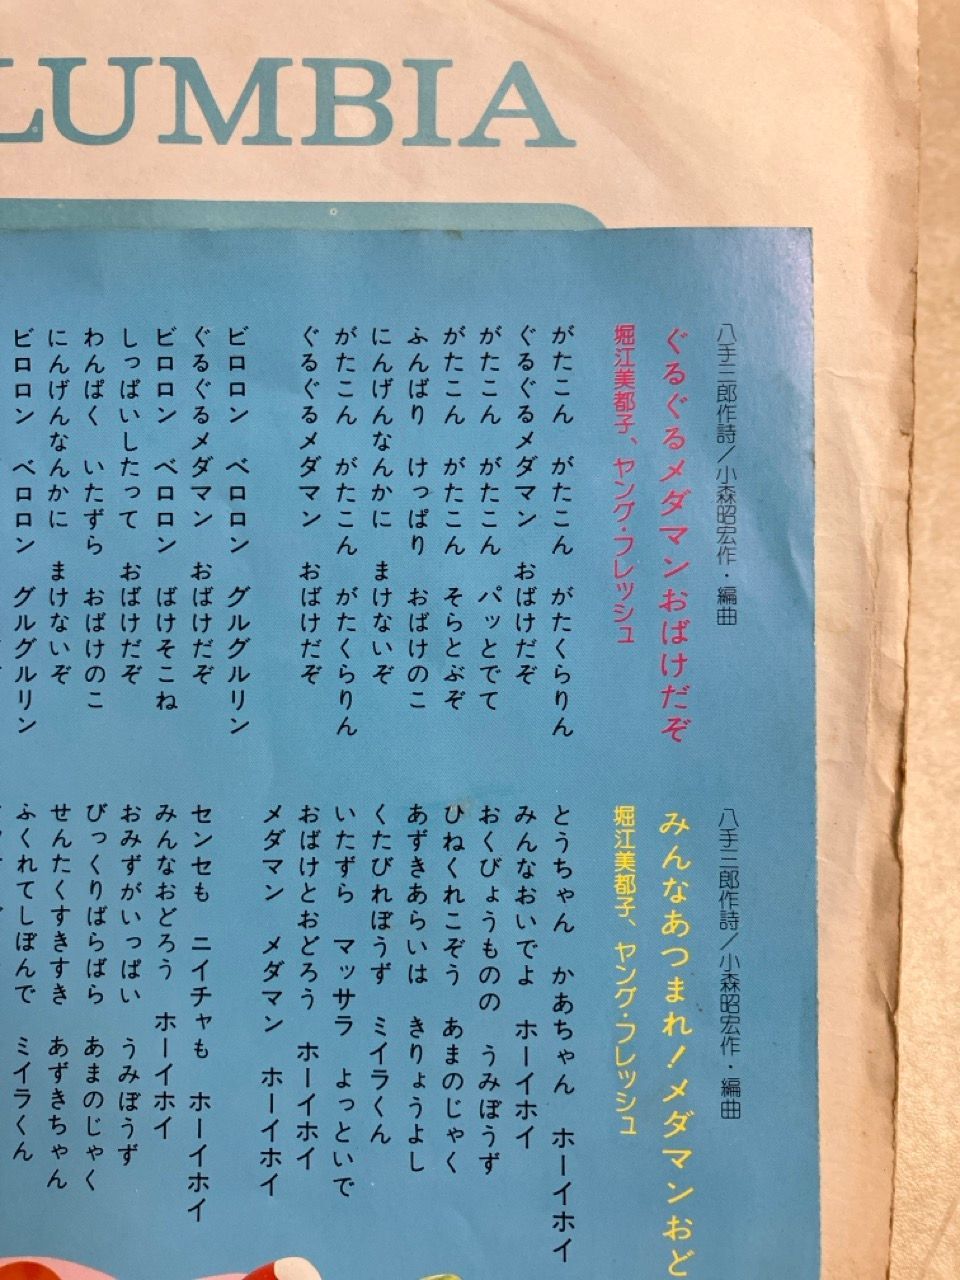 LUMBIA
八手三郎作詩/小森昭宏作・編曲
ぐるぐるメダマンおばけだぞ
堀江美都子、ヤング・フレッシュ
がたこん がたこん がたくらりん
ぐるぐるメダマン おばけだぞ
がたこん がたこん パッとでて
がたこん がたこん そらとぶぞ
ふんばり けっぱり おばけのこ
にんげんなんかに まけないぞ
がたこん がたこん がたくらりん
ぐるぐるメダマン おばけだぞ
ビロロン ベロロン グルグルリン
ぐるぐるメダマン おばけだぞ
ビロロン ベロロン ばけそこね
しっぱいしたって おばけだぞ
わんぱく いたずら おばけのこ
にんげんなんかに まけないぞ
ビロロン ベロロン グルグルリン
八手三郎作詩/小森昭宏作・編曲
みんなあつまれ!メダマンおど
堀江美都子、ヤング・フレッシュ
とうちゃん かあちゃん ホーイホイ
みんなおいでよ ホーイホイ
おくびょうものの うみぼうず
ひねくれこぞう あまのじゃく
あずきあらいは きりょうよし
くたびれぼうず ミイラくん
いたずら マッサラ よっといで
おばけとおどろう ホーイホイ
メダマン メダマン ホーイホイ
センセも ニイチャも ホーイホイ
みんなおどろう ホーイホイ
おみずがいっぱい うみぼうず
びっくりばらばら あまのじゃく
せんたくすきすき あずきちゃん
ふくれてしぼんで ミイラくん